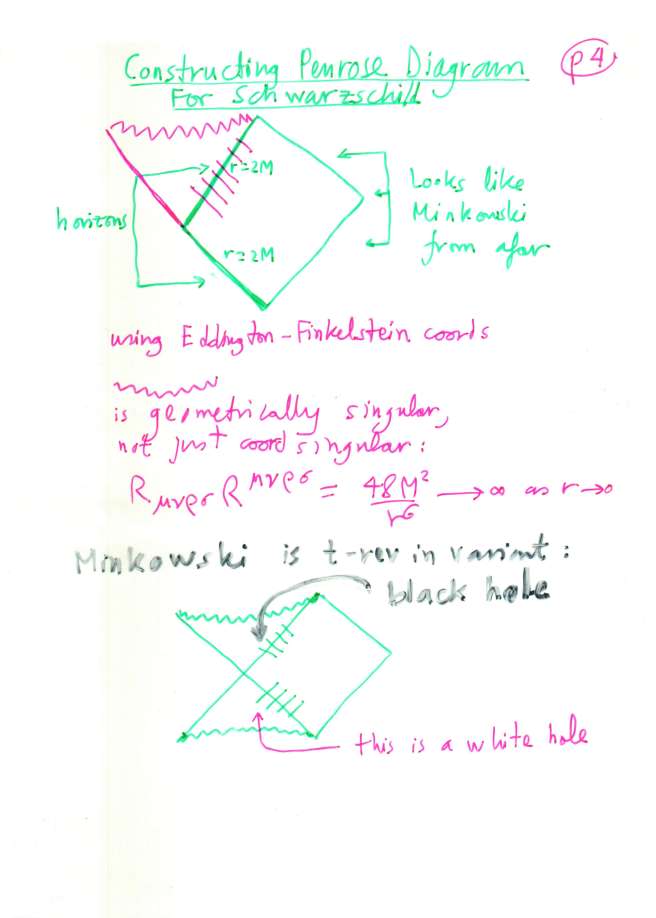 Constructing Penrose Diagram
For Schwarzschild
p4
r=2M
r=2M
horizons
Looks like
Minkowski
from afar
using Eddington-Finkelstein coords
is geometrically singular,
not just coord singular:
R_{μνρσ} R^{μνρσ} = 48M²/r⁶ → ∞ as r→0
Minkowski is t-rev invariant:
black hole
this is a white hole